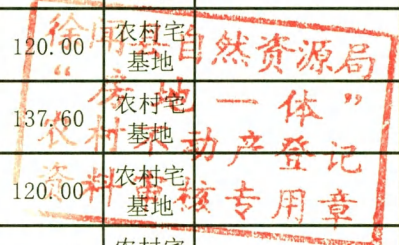 120.00 农村宅
基地
137.60 农村宅
基地
120.00 农村宅
基地
农村宅
徐闻县自然资源局
“房地一体”
农村不动产登记
资料审核专用章